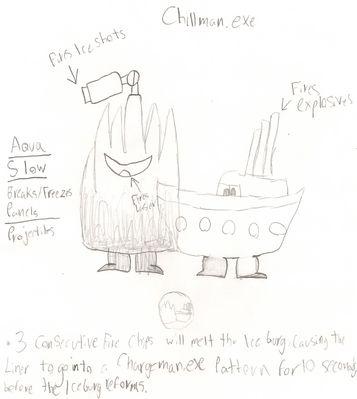 Chillman.exe
Fires Ice shots
Fires
explosives
Aqua
Slow
Breaks/Freezes
Panels
Projectiles
Fires
Laser
• 3 Consecutive Fire Chips will melt the Iceburg, causing the
Liner to go into a Chargeman.exe Pattern for 10 seconds
before the Iceburg reforms.